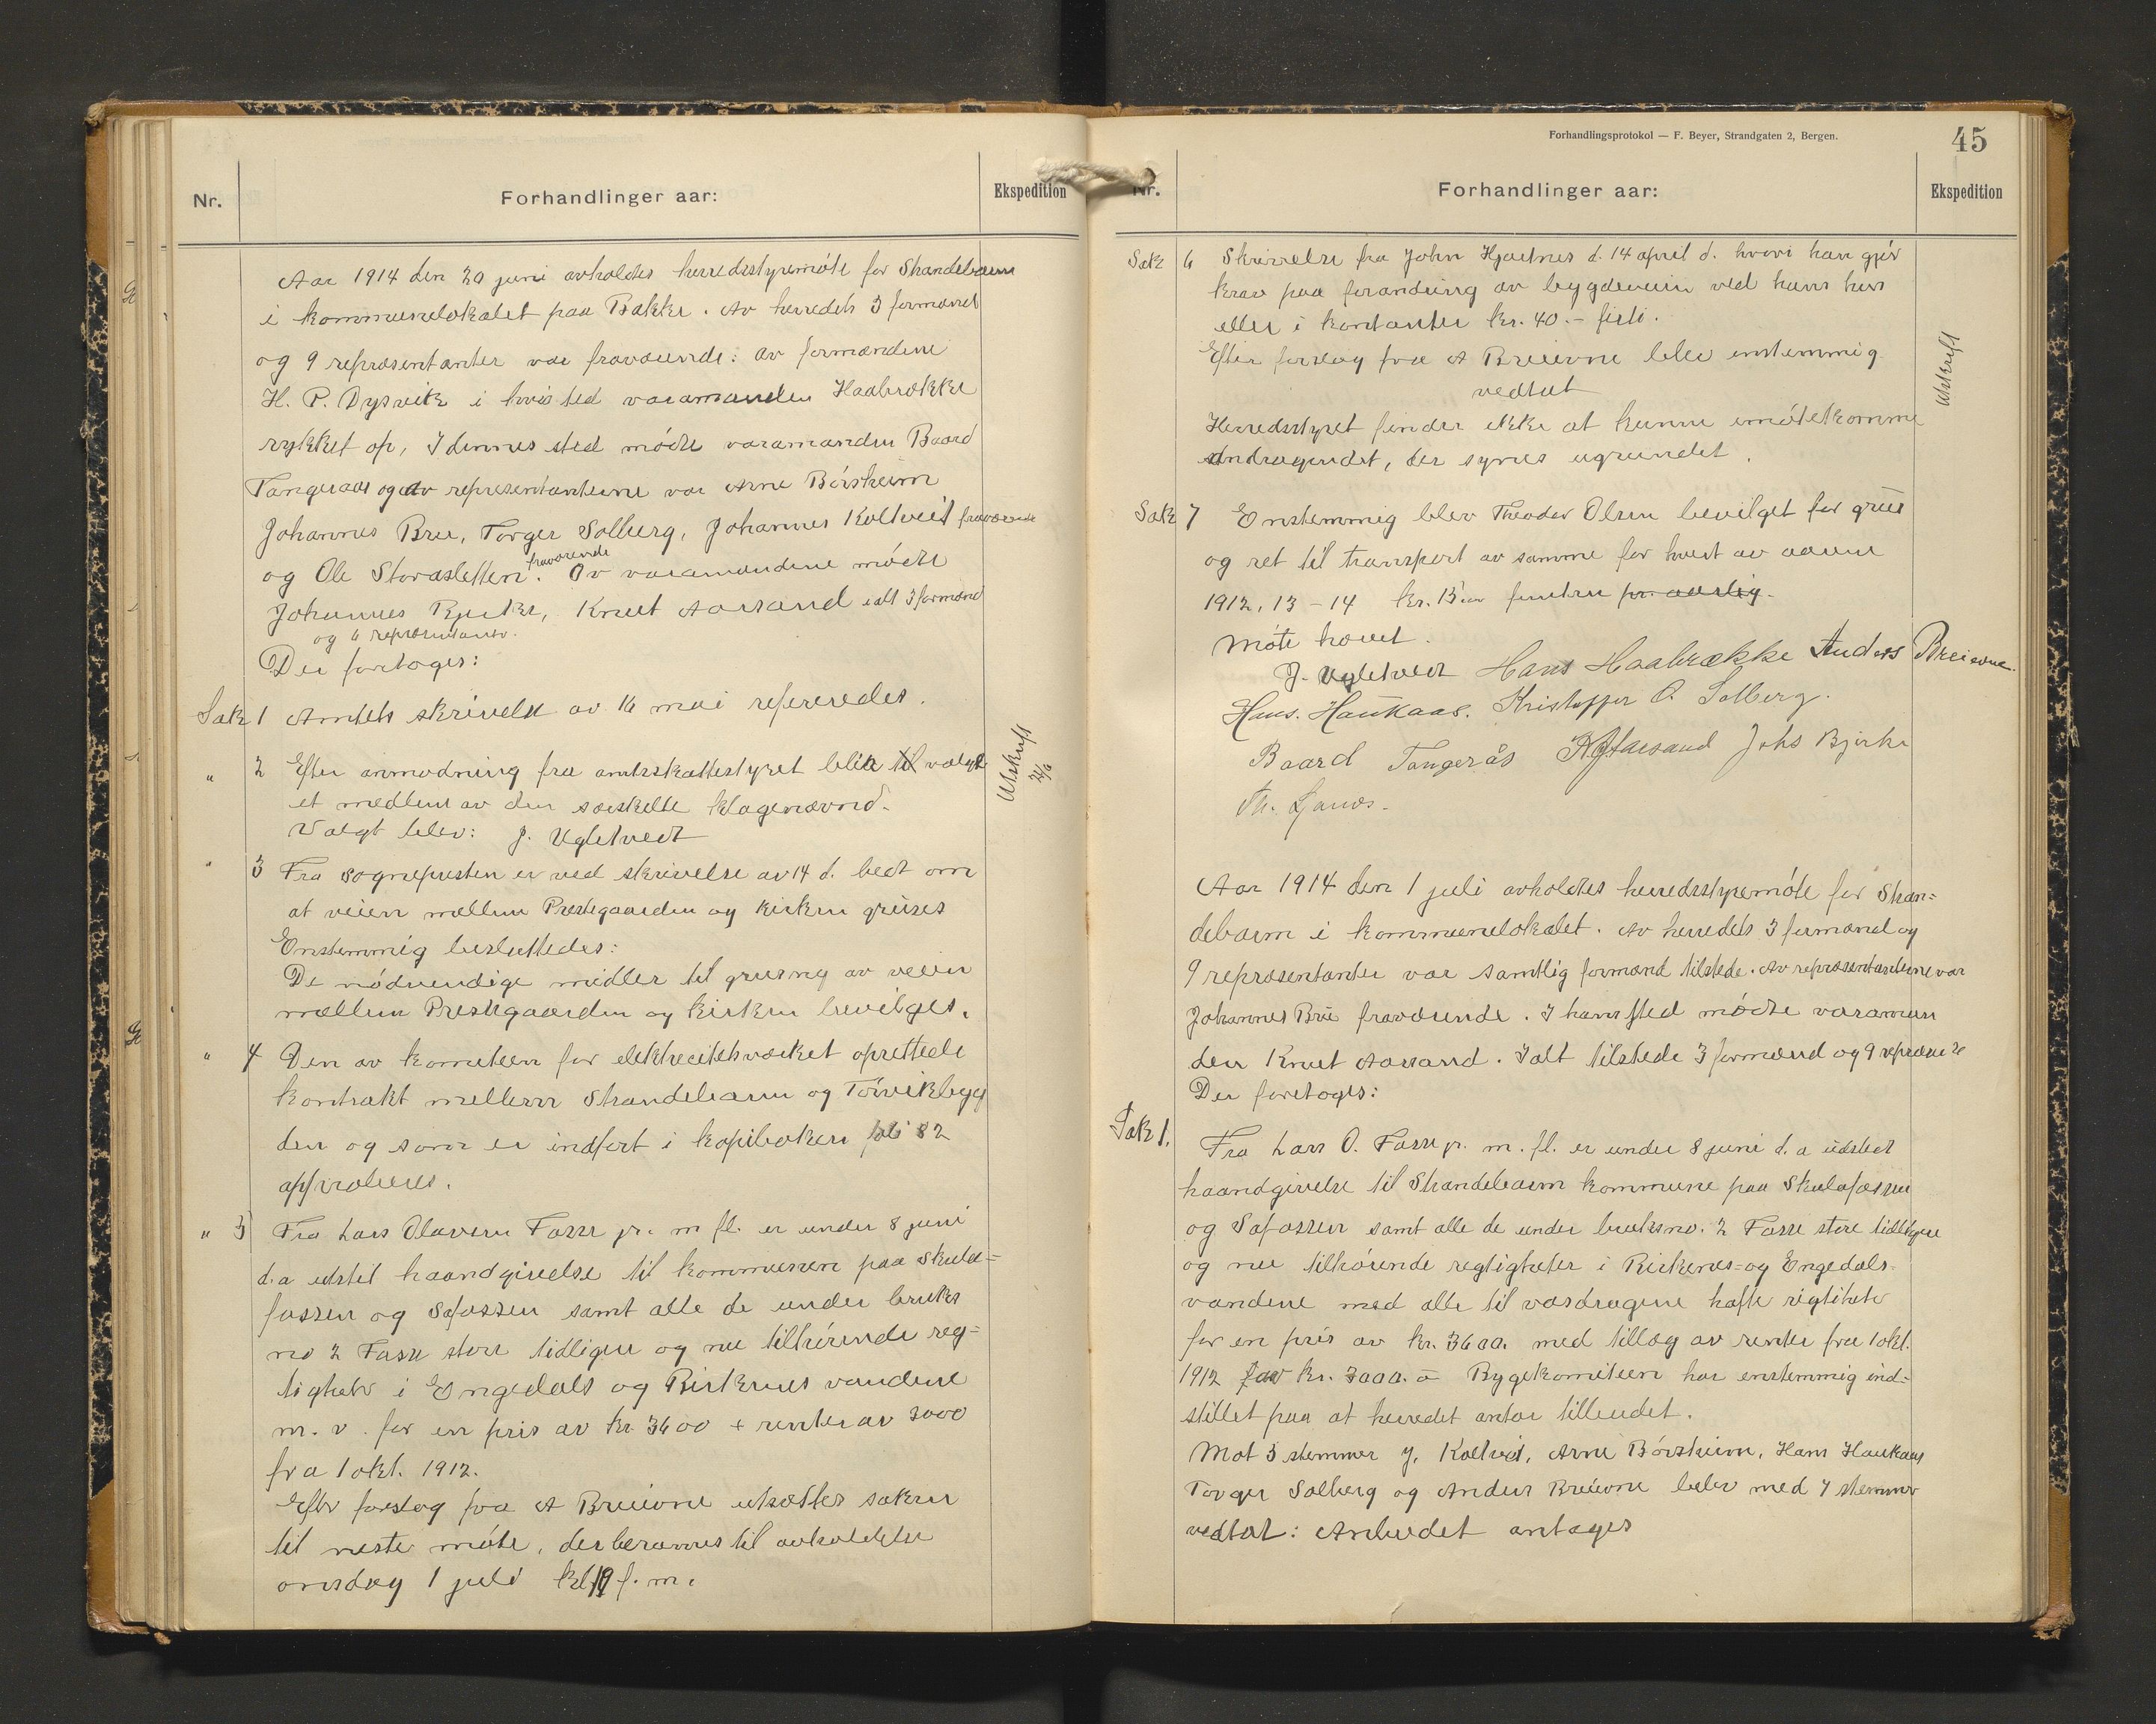 Nr.
Forhandlinger aar:
Ekspedition
Aar 1914 den 20 juni avholdtes herredsstyremöte for Strandebarm
i kommunelokalet paa Bakke. Av herredets 3 formænd
og 9 repræsentanter var fraværende: av formændene
H. P. Dysvik i hvis sted varamanden Haabrække
rykket op, I dennes sted mödte varamanden Baard
Tangeraas og av repræsentanterne var Arne Börsheim
Johannes Bru, Torger Solberg, Johannes Koltveit fraværende
og Ole Storasletten. fraværende Av varamændene mödte
Johannes Bjerke, Knut Aarsand ialt 3 formænd
og 6 repræsentanter.
Der foretoges:
Sak 1 Amtets skrivelse av 16 mai refereredes.
" 2 Efter anmodning fra amtsskattestyret blev til valgt
et medlem av den særskilte klagenævnd.
Valgt blev: J. Ugletveit
Utskrift
" 3 Fra sognepresten er ved skrivelse av 14 d. bedt om
at veien mellem Prestegaarden og kirken gruses
Enstemmig besluttedes:
De nödvendige midler til grusing av veien
mellem Prestegaarden og kirken bevilges.
" 4 Den av komiteen for elektricitetsværket oprettede
kontrakt mellem Strandebarm og Törvikbyg
den og som er indfört i kopiboken 82
approberes.
" 5 Fra Lars Olavsen Fosse jr. m fl. er under 8 juni
d.a utstet haandgivelse til kommunen paa Skula=
fossen og Safossen samt alle de under bruks
no 2 Fosse store tidligere og nu tilhörende reg=
tigheter i Engedals og Birkenes vandene
m. v. for en pris av kr. 3600 + renter av 3000
fra 1 okt. 1912.
Efter forslag fra A Breievne utsættes saken
til neste möte, der berammes til avholdelse
onsdag 1 juli kl. f. m.
Forhandlingsprotokol — F. Beyer, Strandgaten 2, Bergen.
45
Nr.
Forhandlinger aar:
Ekspedition
Sak 6 Skrivelse fra John Hjartnes d. 14 april d. hvori han gjör
krav paa forandring av bygdeveien ved hans hus
eller i kontanter kr. 40.- firti.
Efter forslag fra A Breievne blev enstemmig
vedtat
Herredsstyret finder ikke at kunne imötekomme
andragendet, der synes ugrundet.
Utskrift
Sak 7 Enstemmig blev Theodor Olsen bevilget for grus
og ret til transport av samme for hvert av aarene
1912, 13 - 14 kr. 15 femten pr. aarlig.
Möte hævet.
J. Ugletveit Hans Haabrække Anders Breievne.
Hans. Haukaas. Kristoffer O. Solberg.
Baard Tangerås K Aarsand Johs Bjerke
Th. Ljones.
Aar 1914 den 1 juli avholdtes herredsstyremöte for Stran=
debarm i kommunelokalet. Av herredets 3 formænd og
9 repræsentanter var samtlig formænd tilstede. Av repræsentanterne var
Johannes Bru fraværende. I hans sted mödte varaman
den Knut Aarsand. Ialt tilstede 3 formænd og 9 repræs
Der foretoges:
Sak 1.
Fra Lars O. Fosse jr. m. fl. er under 8 juni d. a utstedt
haandgivelse til Strandebarm kommune paa Skulafossen
og Safossen samt alle de under bruksno. 2 Fosse store tidligere
og nu tilhörende regtigheter i Birkenes- og Engedals-
vandene med alle til vasdragene hafte rigtiheter
for en pris av kr. 3600. med tillæg av renter fra 1 okt.
1912 av kr. 3000. Bygekomiteen har enstemmig ind=
stillet paa at herredet antar tilbudet.
Mot 5 stemmer J. Koltveit, Arne Börsheim, Hans Haukaas
Torger Solberg og Anders Breievne blev med 7 stemmer
vedtat: Anbudet antages